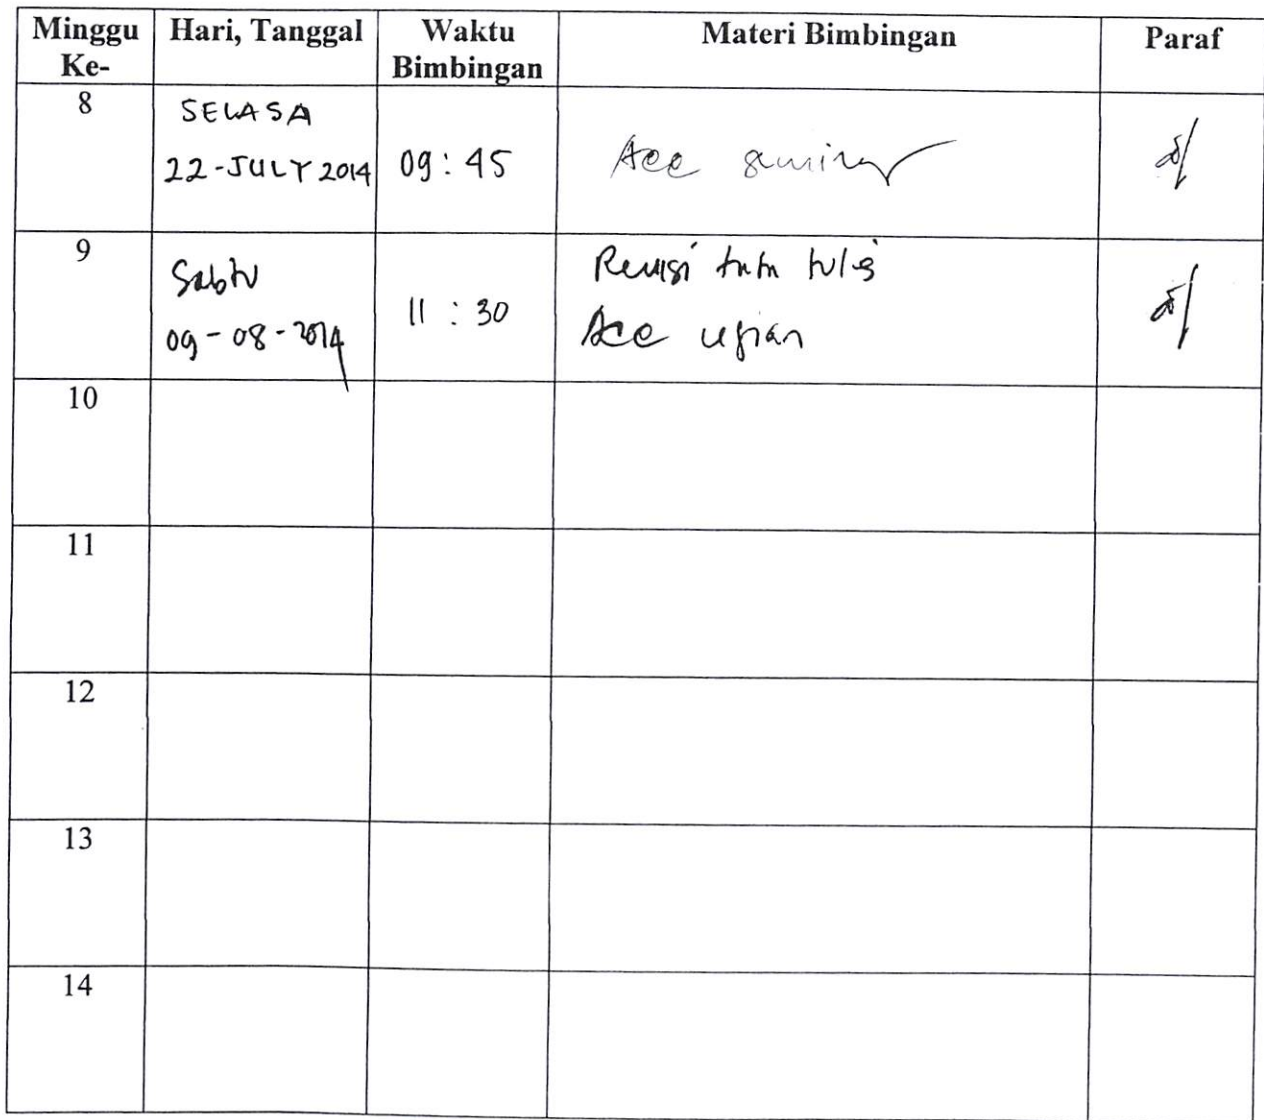 Minggu Ke- Hari, Tanggal Waktu Bimbingan Materi Bimbingan Paraf
8 SELASA
22-JULY 2014 09:45 Acc seminar
9 Sabtu Revisi tata tulis
09-08-2014 11:30 Acc ujian
10
11
12
13
14